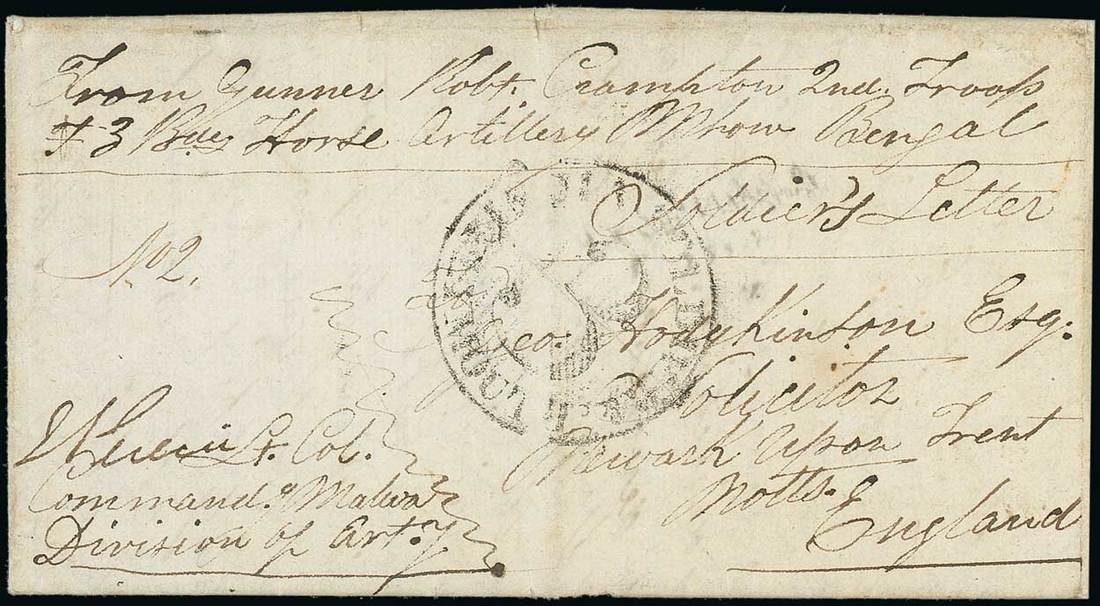 From Gunner Robt. Crampton 2nd. Troop
3 Bde Horse Artillery Mhow Bengal
Soldier's Letter
No 2.
Geo. Hodgkinson Esq:
Solicitor
Newark Upon Trent
Notts.
England
Lt. Col.
Commandg Malwa
Division of Arty